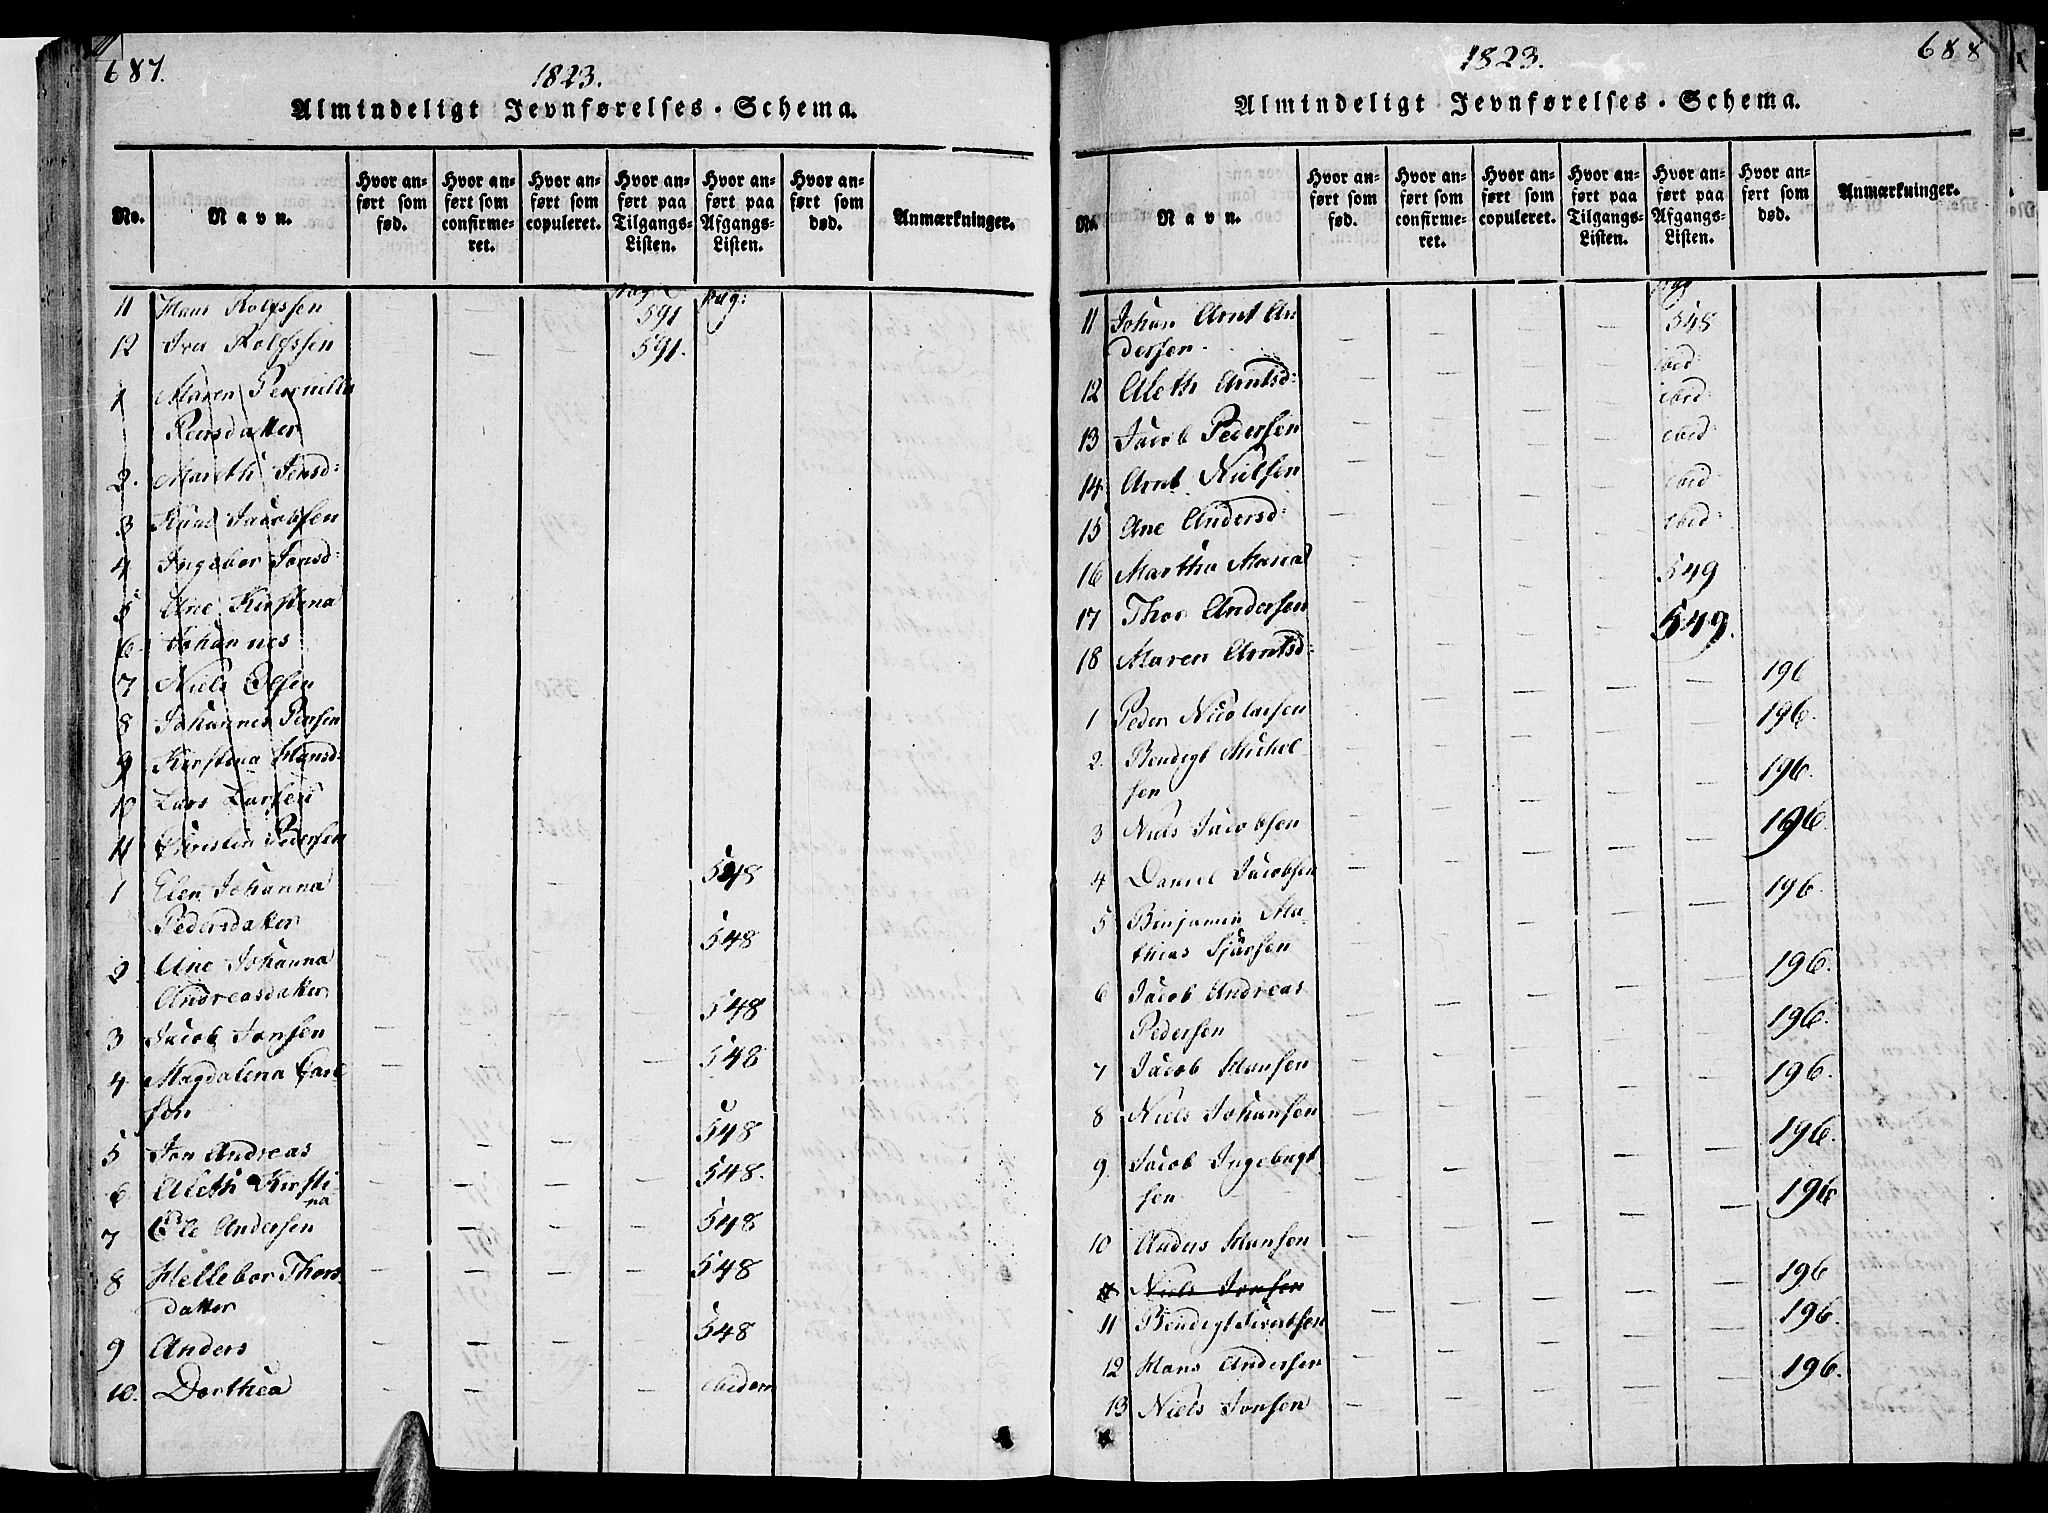 687.
1823.
Almindeligt Jevnførelses-Schema.
No.
Navn.
Hvor anført som fød.
Hvor anført som confirmeret.
Hvor anført som copuleret.
Hvor anført paa Tilgangs-Listen.
Hvor anført paa Afgangs-Listen.
Hvor anført som død.
Anmærkninger.
pag: pag:
11 Hans Rolfssen 591
12 Iver Rolfssen 591.
1 Maren Pernilla
Pensdatter
2. Mareth Jensd:
3 Jacobsen
4 Ingebor Jonsd:
5 Ane Kirstina
6. Johannes
7 Niels Olsen
8 Johannes Pensen
9 Kirstina Hansd:
10 Lars Larsen
11 Christen Pedersen
1 Elen Johanna 548
Pedersdatter
2 Ane Johanna 548
Andreasdatter
3 Jacob Jonsen 548
4 Magdalena Carl 548
sen
5 Jon Andreas 548
6 Aleth Kirsti- 548.
na
7 Ole Andersen 548
8 Hellebor Thors- 548
datter
9 Anders 548
10. Dorthea ibidem
688
1823.
Almindeligt Jevnførelses-Schema.
No.
Navn.
Hvor anført som fød.
Hvor anført som confirmeret.
Hvor anført som copuleret.
Hvor anført paa Tilgangs-Listen.
Hvor anført paa Afgangs-Listen.
Hvor anført som død.
Anmærkninger.
pag
11 Johan Arnt An 548
dersen. ibid
12 Aleth Arntsd: ibid
13 Jacob Pedersen ibid
14 Arnt Nielsen ibid
15 Ane Andersd: ibid
16 Martha Maria 549
17 Thor Andersen 549.
18 Maren Arntsd:
1 Peder Nicolaisen 196
2. Bendigt Michel- 196.
sen
3 Niels Jacobsen 196.
4 Daniel Jacobsen 196.
5 Benjamin Ma- 196.
thias Sjursen
6 Jacob Andreas 196.
Pedersen
7 Jacob Hansen 196.
8 Niels Johansen 196.
9. Jacob Ingebrigt 196.
sen
10 Anders Hansen 196
Niels Jonsen
11 Bendigt Sivertsen 196
12 Hans Andersen 196.
13 Niels Jonsen 196.